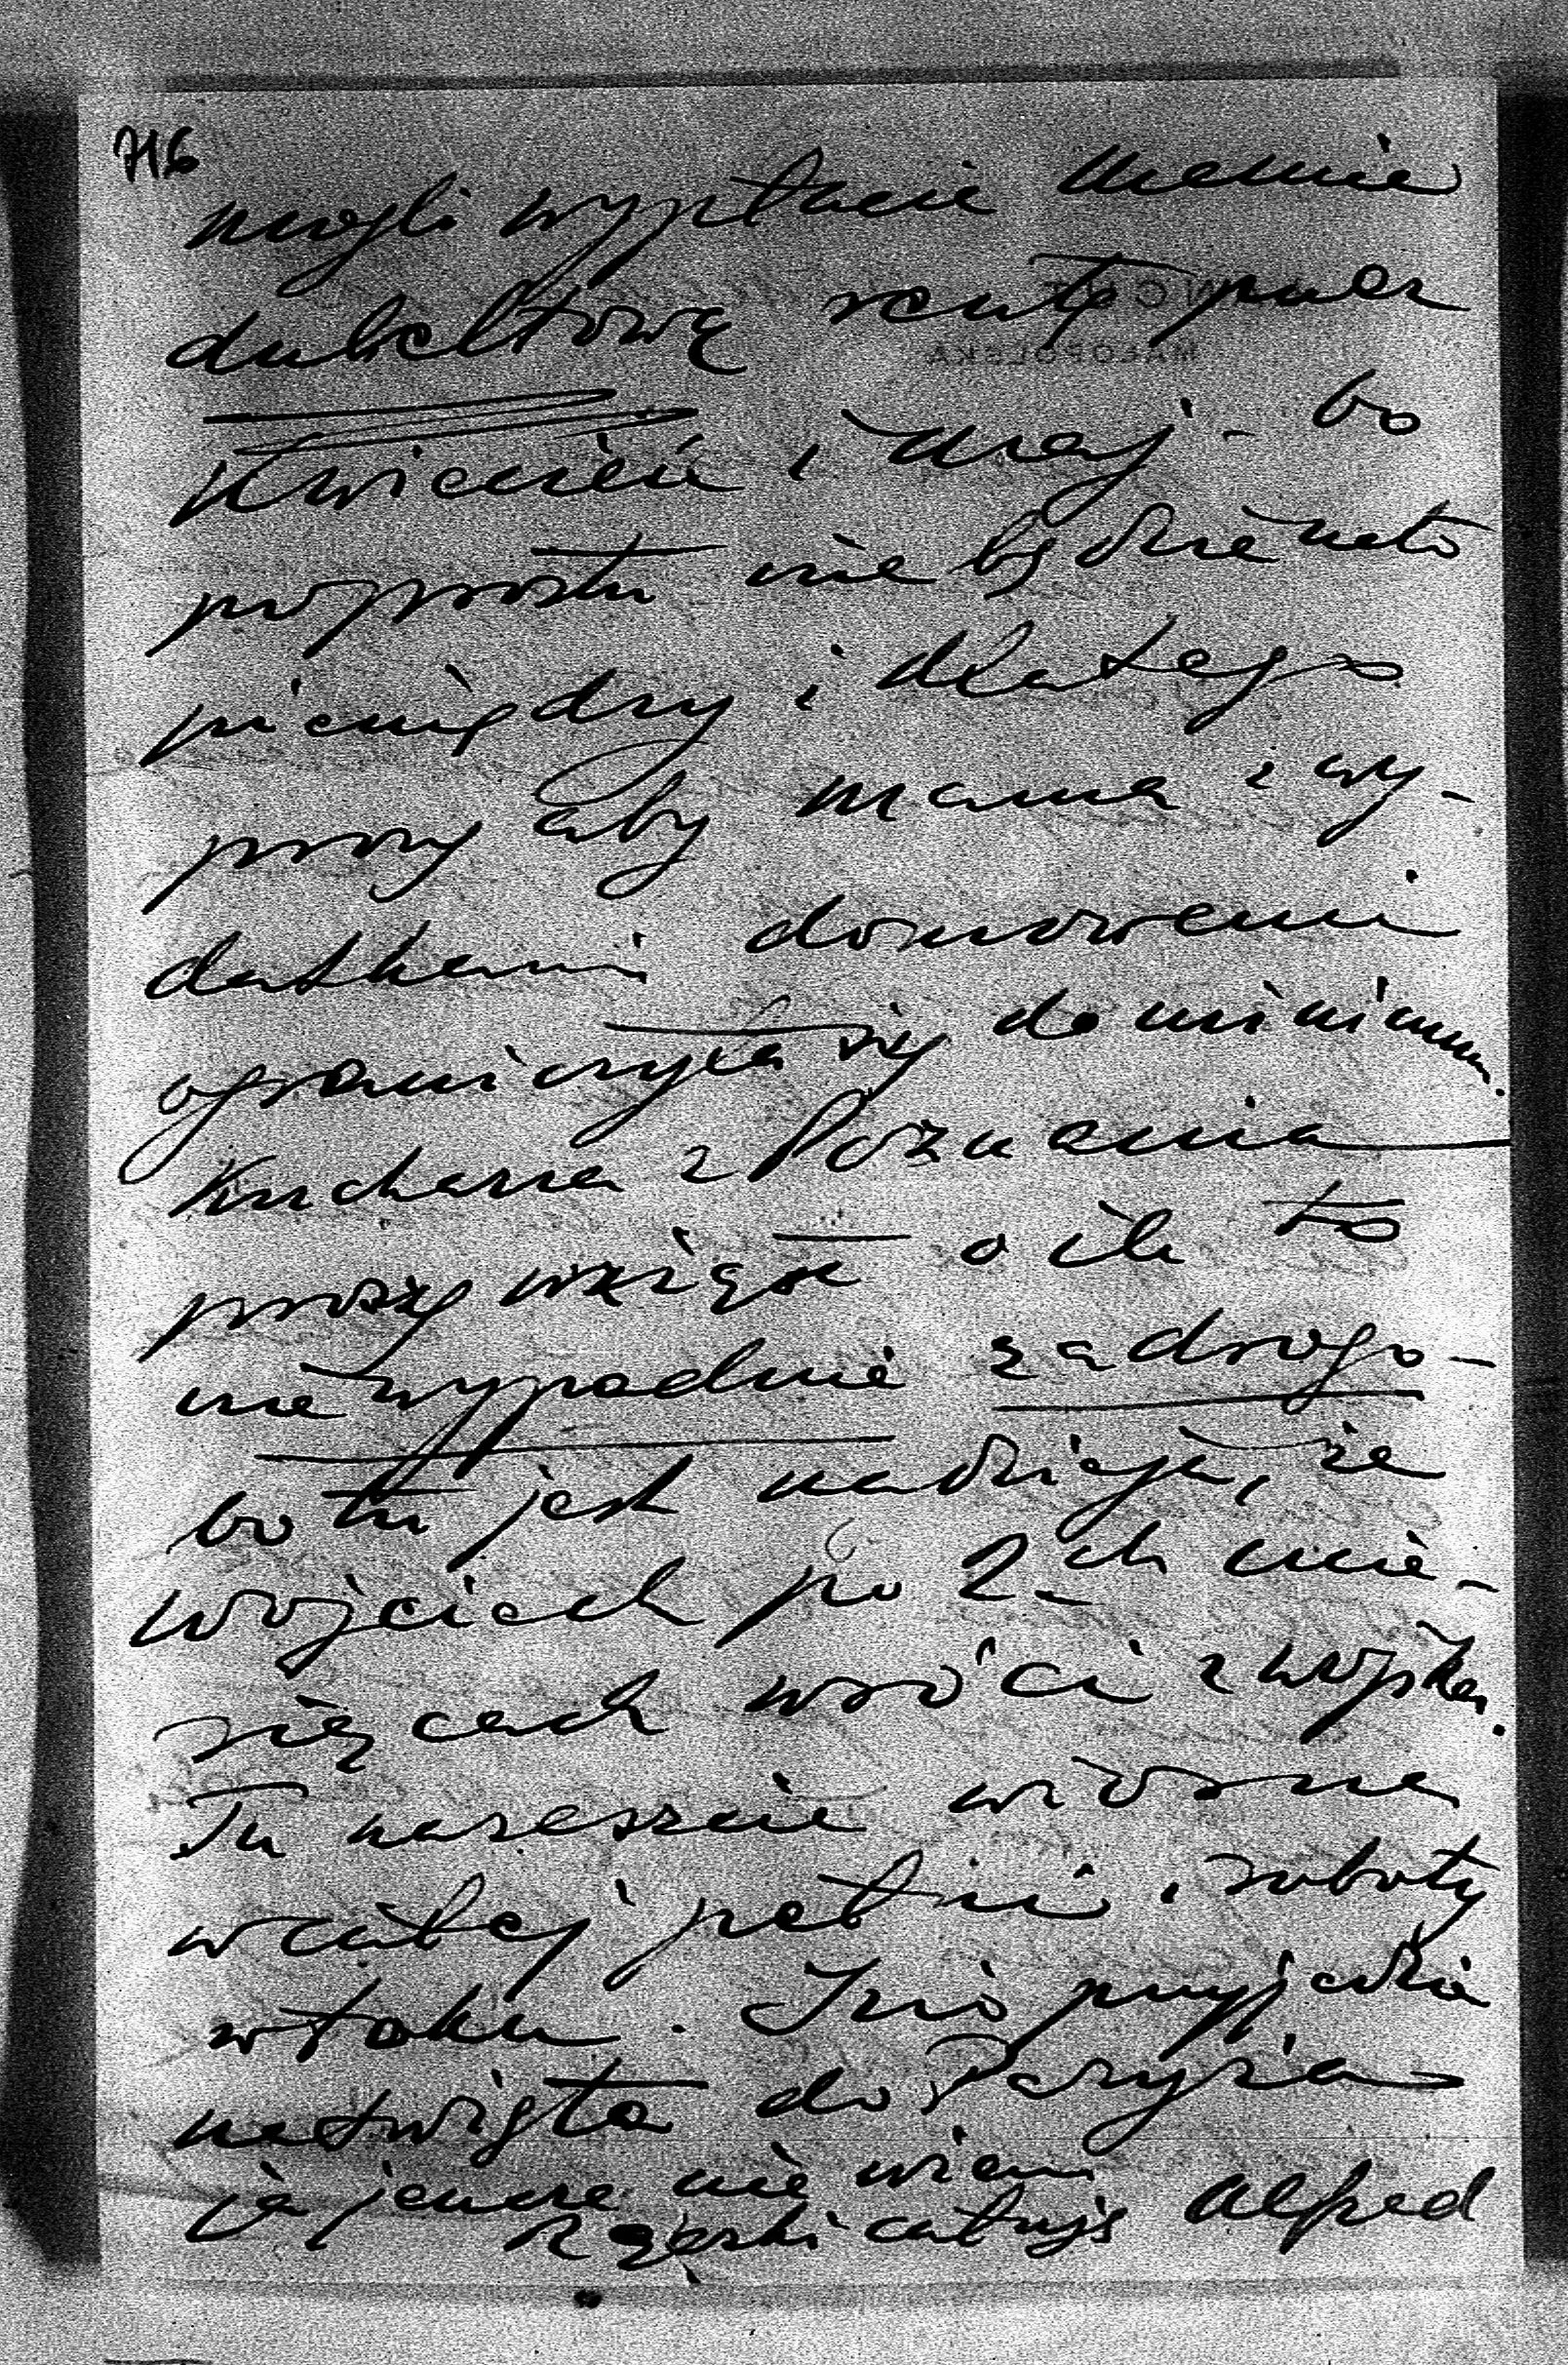 716
mogli wypłacić mamie
dubeltową rentę przez
Kwiecień i maj - bo
poprostu nie będzie na to
pieniędzy i dlatego
proszę aby mama z wy-
datkami domowemi
ograniczyła się do minimum.
Kucharza z Poznania
proszę wziąść o ile to
nie wypadnie za drogo -
bo tu jest nadzieja, że
Wojciech po 2-ch mie-
sięcach wróci z wojska.
Tu nareszcie wiosna
w całej pełni i roboty
w toku. Juś przyjedzie
na święta do Paryża
ja jeszcze nie wiem
Rączki całuję Alfred
ŁAŃCUT
MAŁOPOLSKA